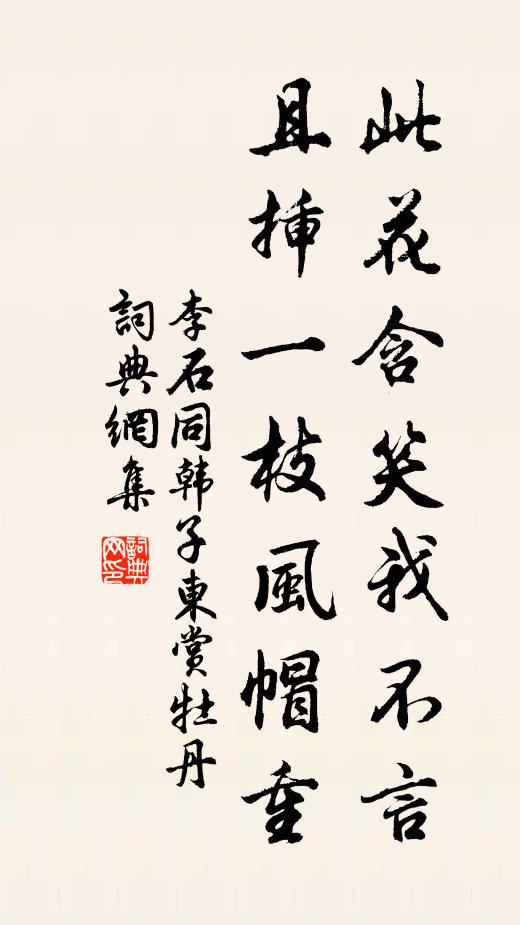 此花含笑我不言
且插一枝風帽重
李石同韩子東賞牡丹
詞典網集
詞典网印